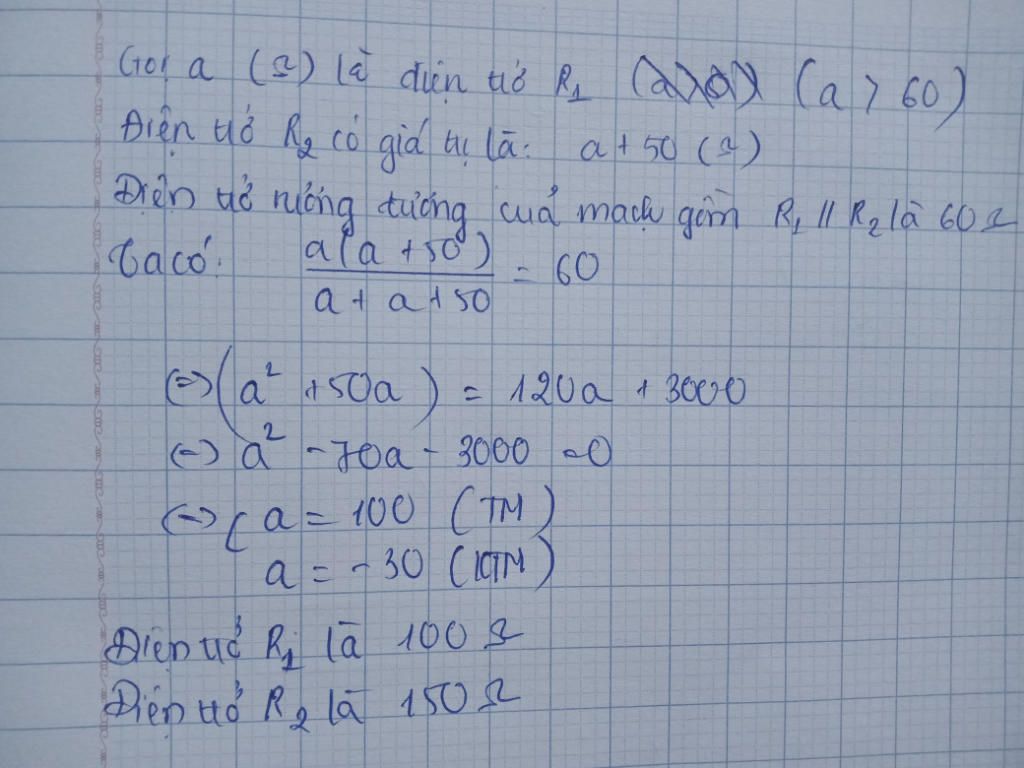 Gọi a (Ω) là điện trở R₁ (a > 60)
Điện trở R₂ có giá trị là: a + 50 (Ω)
Điện trở tương đương của mạch gồm R₁ // R₂ là 60 Ω
Ta có: a(a + 50) / (a + a + 50) = 60
(=> (a² + 50a) = 120a + 3000
(=> a² - 70a - 3000 = 0
(=> [ a = 100 (TM)
a = -30 (KTM)
Điện trở R₁ là 100 Ω
Điện trở R₂ là 150 Ω